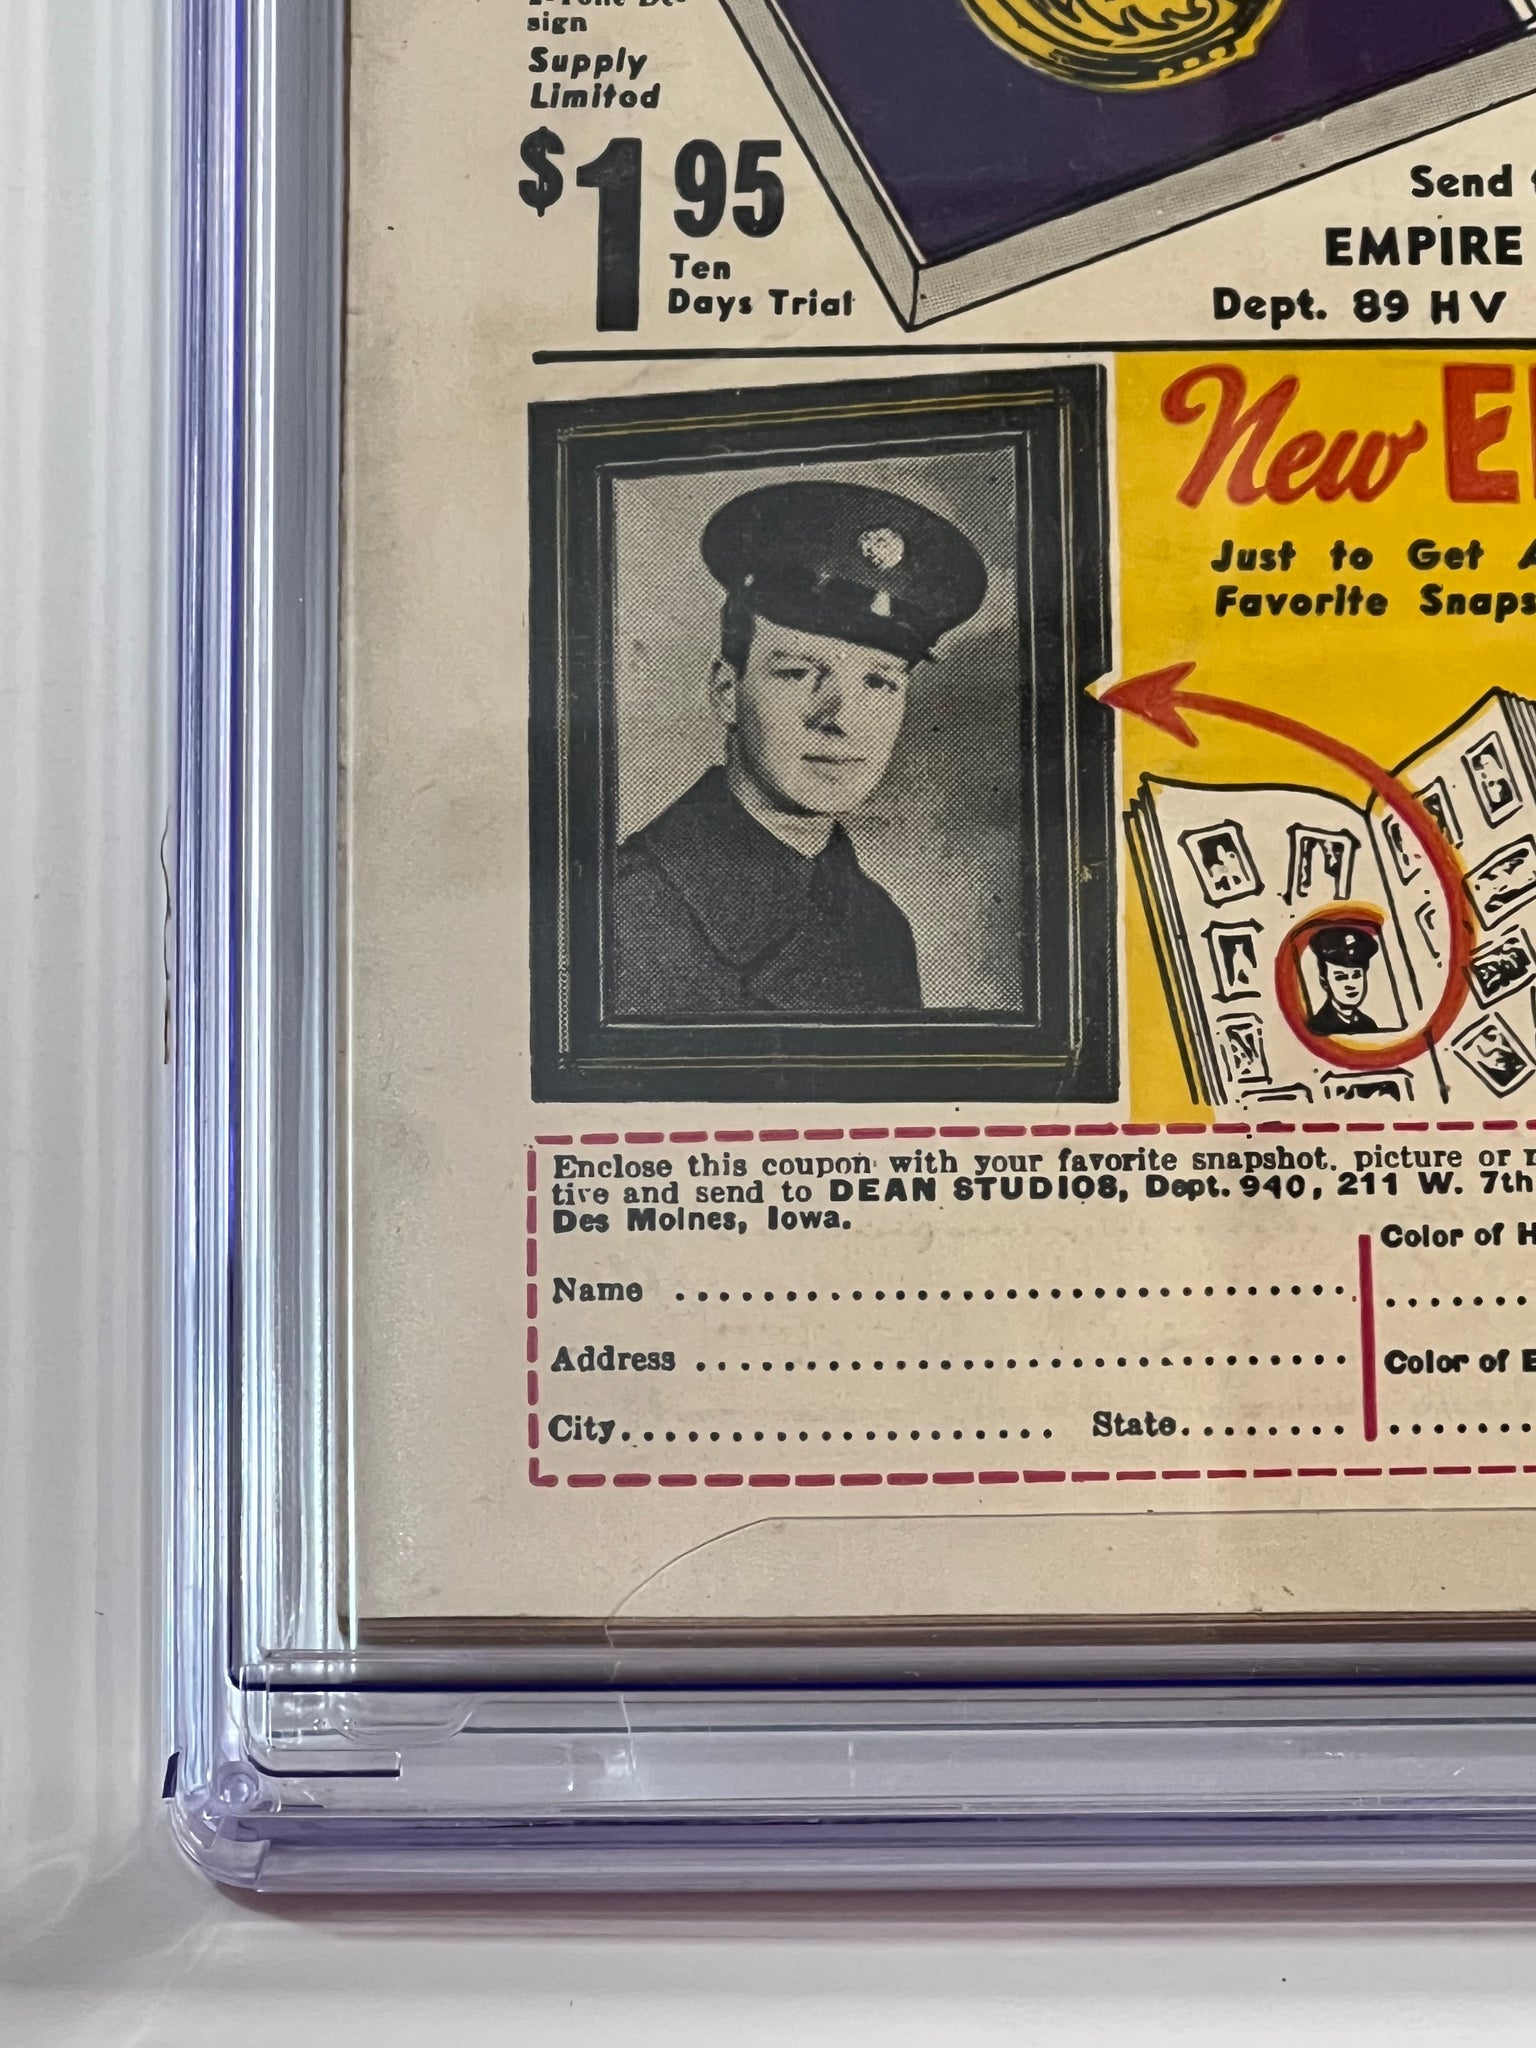 sign
Supply
Limited
$1 95
Ten
Days Trial
Send
EMPIRE
Dept. 89 HV
New
Just to Get
Favorite
Enclose this coupon with your favorite snapshot, picture or
tive and send to DEAN STUDIOS, Dept. 940, 211 W. 7th
Des Moines, Iowa.
Color of
Name
Address
Color of
City State